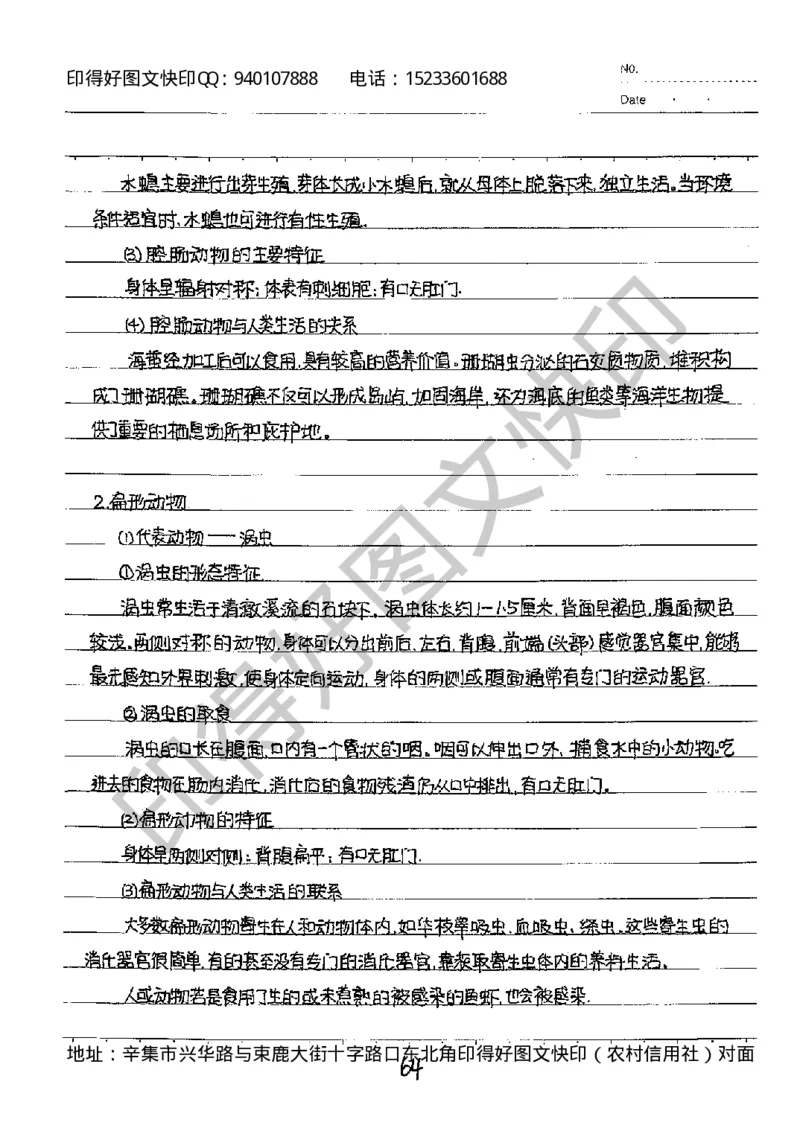 印得好图文快印QQ：940107888 电话：15233601688
No.
Date
水螅主要进行出芽生殖，芽体长成小水螅后，就从母体上脱落下来，独立生活。当环境
条件适宜时，水螅也可进行有性生殖。
(3)腔肠动物的主要特征
身体呈辐射对称；体表有刺细胞；有口无肛门.
(4)腔肠动物与人类生活的关系
海蜇经加工后可以食用，具有较高的营养价值。珊瑚虫分泌的石灰质物质，堆积构
成了珊瑚礁。珊瑚礁不仅可以形成岛屿，加固海岸，还为海底的鱼类等海洋生物提
供了重要的栖息场所和庇护地。
2.扁形动物
(1)代表动物——涡虫
①涡虫的形态特征
涡虫常生活于清澈溪流的石块下，涡虫体长约1-1.5厘米，背面呈褐色，腹面颜色
较浅。两侧对称的动物，身体可以分出前后、左右、背腹，前端(头部)感觉器官集中，能够
最先感知外界刺激，使身体定向运动，身体的两侧或腹面通常有专门的运动器官.
②涡虫的取食
涡虫的口长在腹面，口内有一个管状的咽。咽可以伸出口外，捕食水中的小动物。吃
进去的食物在肠内消化，消化后的食物残渣仍从口中排出，有口无肛门。
(2)扁形动物的特征
身体呈两侧对侧；背腹扁平；有口无肛门.
(3)扁形动物与人类生活的联系
大多数扁形动物寄生在人和动物体内，如华枝睾吸虫、血吸虫、绦虫。这些寄生虫的
消化器官很简单，有的甚至没有专门的消化器官，靠获取寄生虫体内的养料生活。
人或动物若是食用了生的或未煮熟的被感染的鱼虾，也会被感染.
印得好图文快印
地址：辛集市兴华路与束鹿大街十字路口东北角印得好图文快印（农村信用社）对面
64